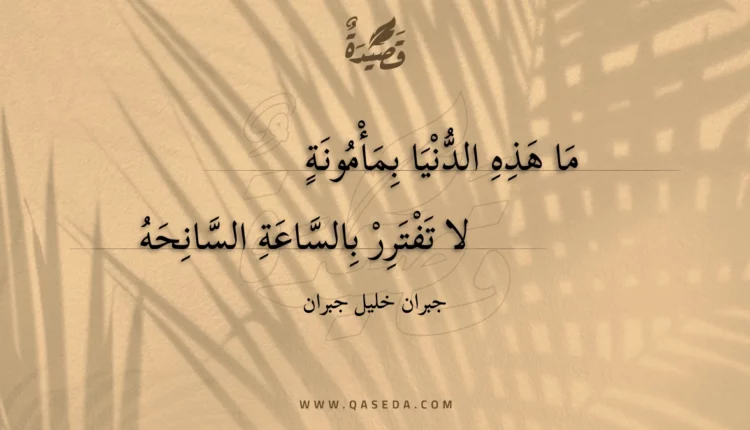 قَصِيدَةٌ
مَا هَذِهِ الدُّنْيَا بِمَأْمُونَةٍ
لا تَفْتَرِرْ بِالسَّاعَةِ السَّانِحَهُ
جبران خليل جبران
WWW.QASEDA.COM